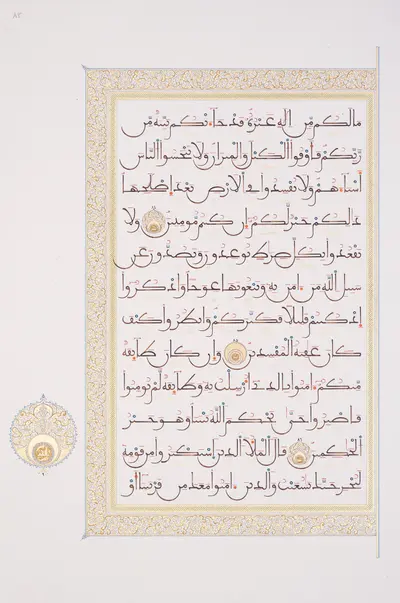 مالكم من إله غيره قد جاءتكم بينة من
ربكم فأوفوا الكيل والميزان ولا تبخسوا الناس
أشياءهم ولا تفسدوا في الأرض بعد إصلحها
ذلكم خير لكم إن كنتم مؤمنين ولا
تقعدوا بكل صرط توعدون وتصدون عن
سبيل الله من ءامن به وتبغونها عوجا واذكروا
إذ كنتم قليلا فكثركم وانظروا كيف
كان عقبة المفسدين وإن كان طائفة
منكم ءامنوا بالذي أرسلت به وطائفة لم يؤمنوا
فاصبروا حتى يحكم الله بيننا وهو خير
الحكمين قال الملأ الذين استكبروا من قومه
لنخرجنك يشعيب والذين ءامنوا معك من قريتنا أو